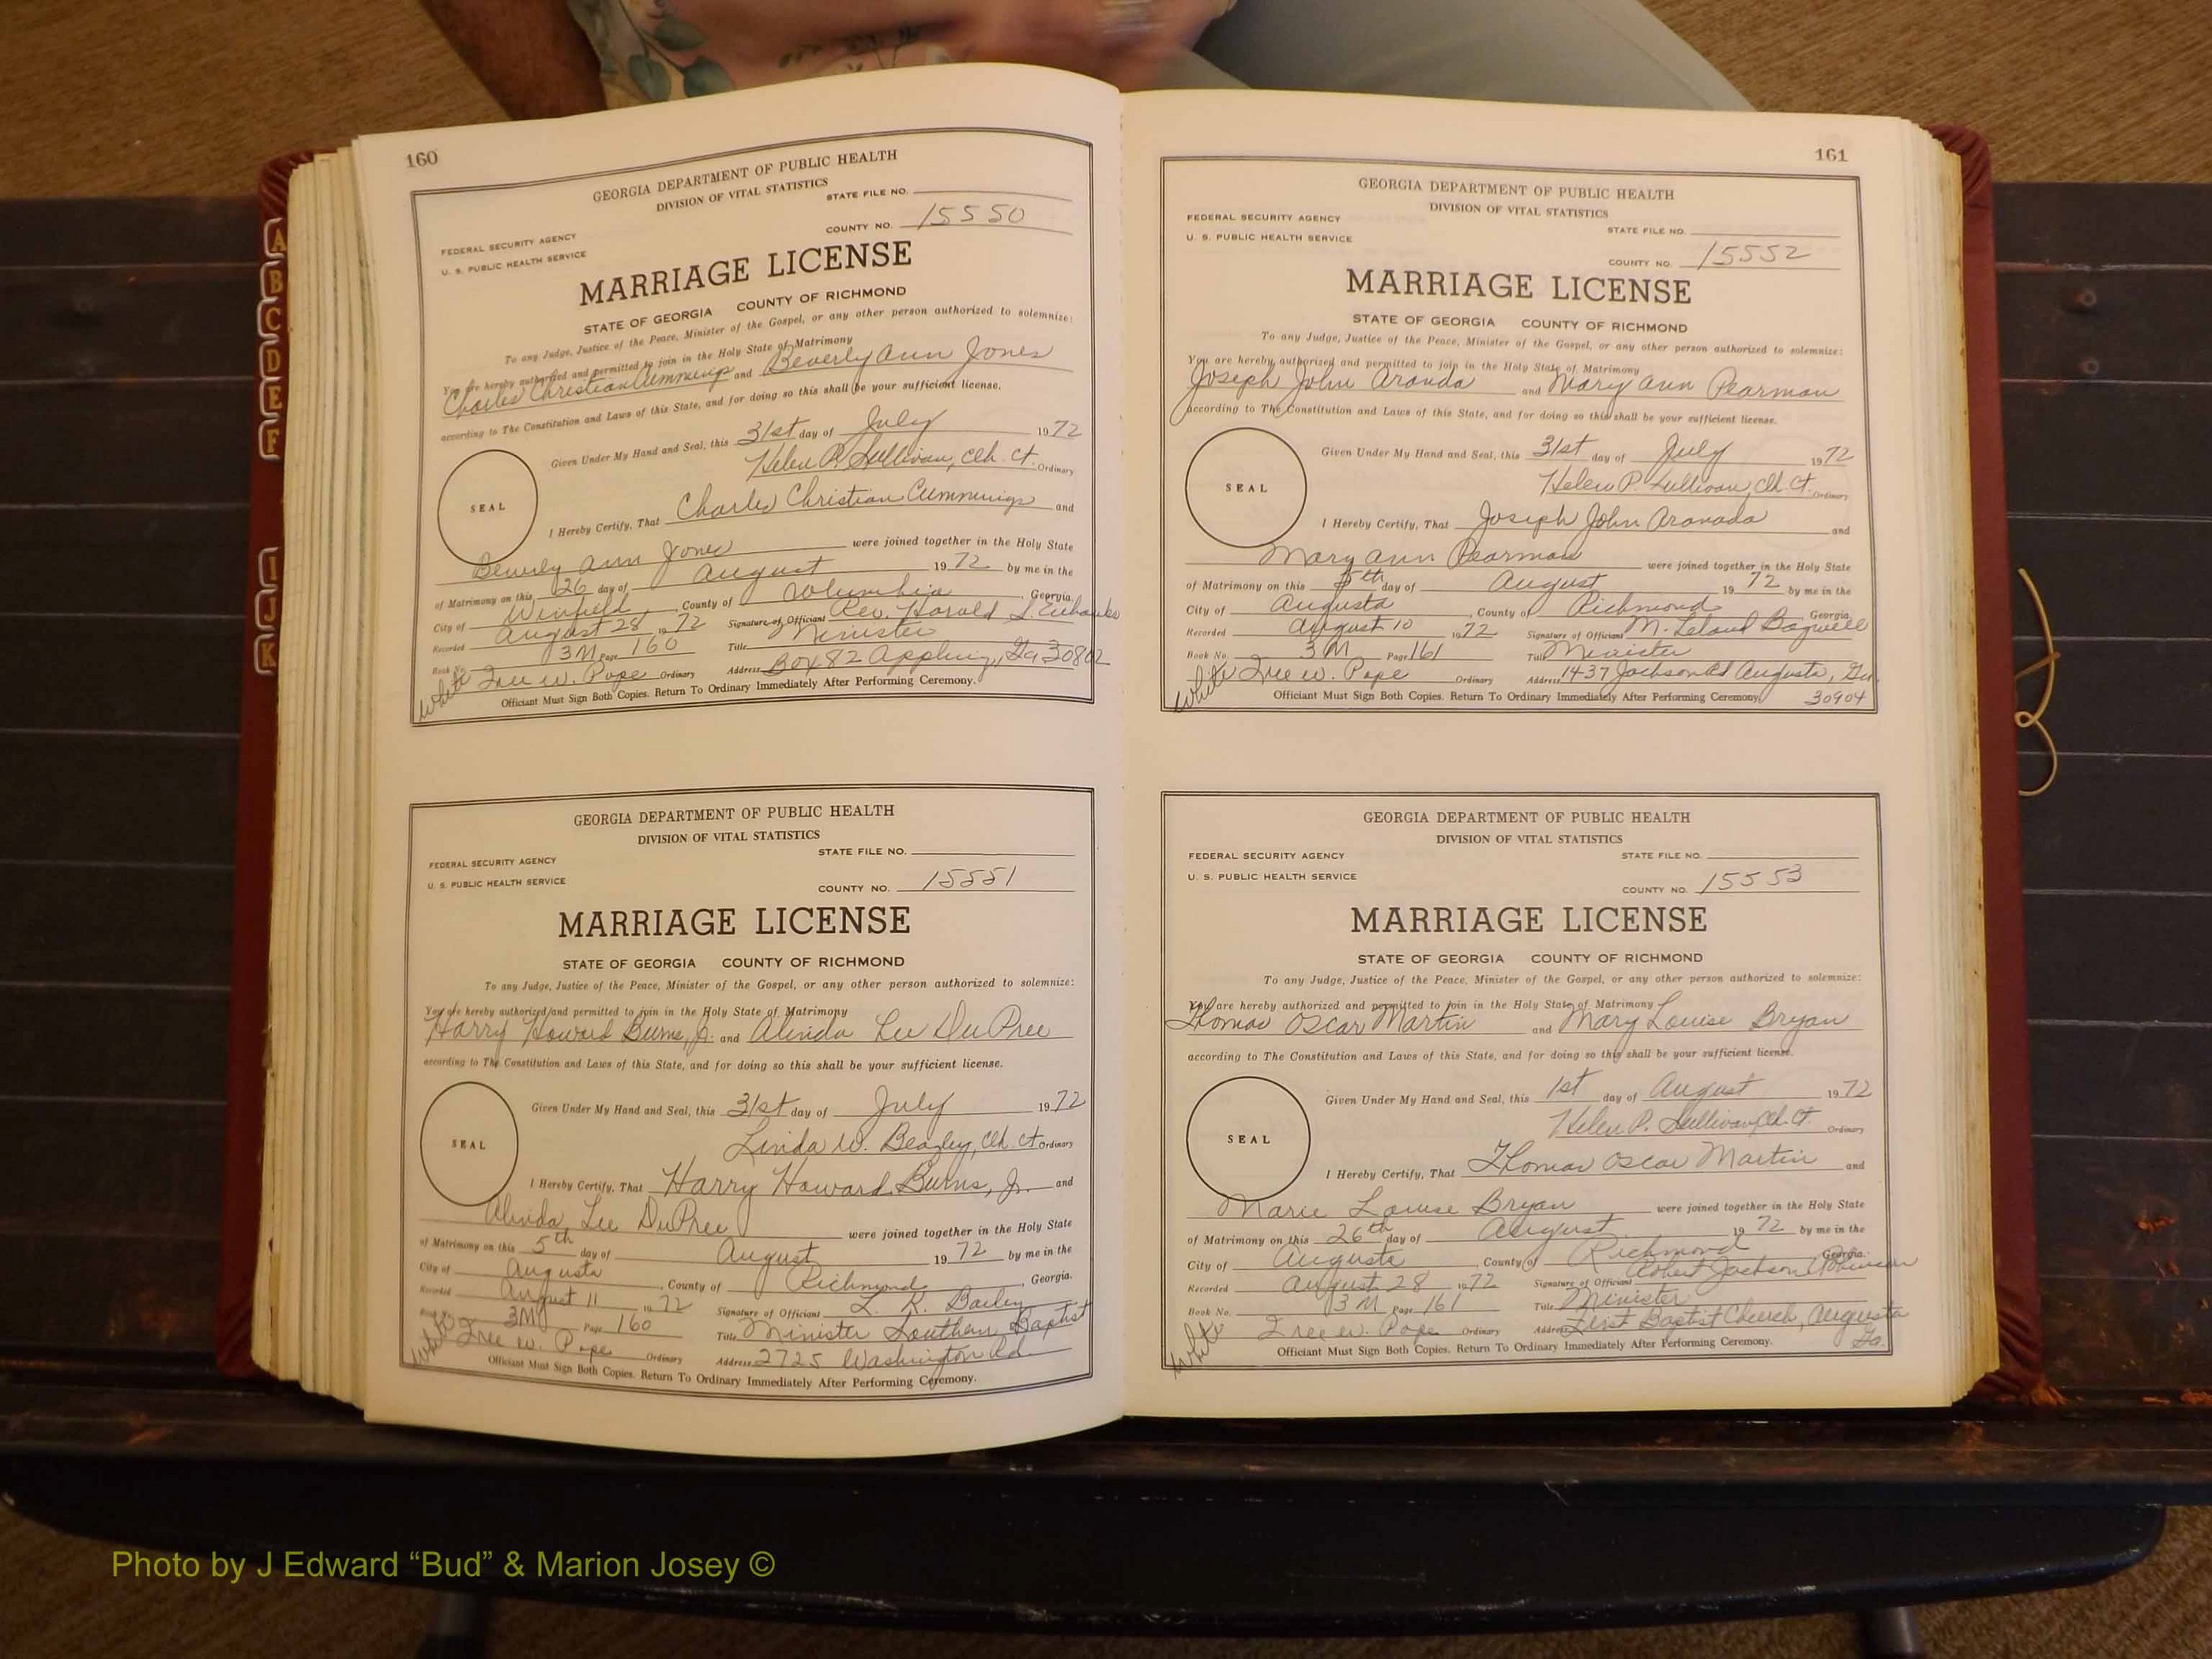 A
B
C
D
E
F
I
J
K
160
GEORGIA DEPARTMENT OF PUBLIC HEALTH
DIVISION OF VITAL STATISTICS
STATE FILE NO.
FEDERAL SECURITY AGENCY
U. S. PUBLIC HEALTH SERVICE
COUNTY NO. 15550
MARRIAGE LICENSE
STATE OF GEORGIA COUNTY OF RICHMOND
To any Judge, Justice of the Peace, Minister of the Gospel, or any other person authorized to solemnize:
You are hereby authorized and permitted to join in the Holy State of Matrimony
Charles Christian Cummings and Beverly Ann Jones
according to The Constitution and Laws of this State, and for doing so this shall be your sufficient license.
Given Under My Hand and Seal, this 31st day of July 1972
Helen P. Sullivan, Clk. Ct. Ordinary
SEAL
I Hereby Certify, That Charles Christian Cummings and
Beverly Ann Jones were joined together in the Holy State
of Matrimony on this 26 day of August 1972 by me in the
City of Winfield, County of Columbia, Georgia.
Recorded August 28 1972 Signature of Officiant Rev. Harold S. Eubanks
Book No. 3M Page 160 Title Minister
White Tree W. Pope Ordinary Address Box 82 Appling, Ga 30802
Officiant Must Sign Both Copies. Return To Ordinary Immediately After Performing Ceremony.
GEORGIA DEPARTMENT OF PUBLIC HEALTH
DIVISION OF VITAL STATISTICS
STATE FILE NO.
FEDERAL SECURITY AGENCY
U. S. PUBLIC HEALTH SERVICE
COUNTY NO. 15551
MARRIAGE LICENSE
STATE OF GEORGIA COUNTY OF RICHMOND
To any Judge, Justice of the Peace, Minister of the Gospel, or any other person authorized to solemnize:
You are hereby authorized and permitted to join in the Holy State of Matrimony
Harry Howard Burns, Jr. and Alinda Lee DuPree
according to The Constitution and Laws of this State, and for doing so this shall be your sufficient license.
Given Under My Hand and Seal, this 31st day of July 1972
Linda W. Beazley, Clk. Ct. Ordinary
SEAL
I Hereby Certify, That Harry Howard Burns, Jr. and
Alinda Lee DuPree were joined together in the Holy State
of Matrimony on this 5th day of August 1972 by me in the
City of Augusta, County of Richmond, Georgia.
Recorded August 11 1972 Signature of Officiant L. K. Bailey
Book No. 3M Page 160 Title Minister Southern Baptist
White Tree W. Pope Ordinary Address 2725 Washington Rd
Officiant Must Sign Both Copies. Return To Ordinary Immediately After Performing Ceremony.
161
GEORGIA DEPARTMENT OF PUBLIC HEALTH
DIVISION OF VITAL STATISTICS
FEDERAL SECURITY AGENCY
U. S. PUBLIC HEALTH SERVICE
STATE FILE NO.
COUNTY NO. 15552
MARRIAGE LICENSE
STATE OF GEORGIA COUNTY OF RICHMOND
To any Judge, Justice of the Peace, Minister of the Gospel, or any other person authorized to solemnize:
You are hereby authorized and permitted to join in the Holy State of Matrimony
Joseph John Aranda and Mary Ann Pearman
according to The Constitution and Laws of this State, and for doing so this shall be your sufficient license.
Given Under My Hand and Seal, this 31st day of July 1972
Helen P. Sullivan, Clk. Ct. Ordinary
SEAL
I Hereby Certify, That Joseph John Aravada and
Mary Ann Pearman were joined together in the Holy State
of Matrimony on this 5th day of August 1972 by me in the
City of Augusta, County of Richmond Georgia.
Recorded August 10 1972 Signature of Officiant M. Leland Bagwell
Book No. 3M Page 161 Title Minister
White Tree W. Pope Ordinary Address 1437 Jackson Rd Augusta, Ga.
Officiant Must Sign Both Copies. Return To Ordinary Immediately After Performing Ceremony. 30904
GEORGIA DEPARTMENT OF PUBLIC HEALTH
DIVISION OF VITAL STATISTICS
FEDERAL SECURITY AGENCY
STATE FILE NO.
U. S. PUBLIC HEALTH SERVICE
COUNTY NO. 15553
MARRIAGE LICENSE
STATE OF GEORGIA COUNTY OF RICHMOND
To any Judge, Justice of the Peace, Minister of the Gospel, or any other person authorized to solemnize:
You are hereby authorized and permitted to join in the Holy State of Matrimony
Thomas Oscar Martin and Mary Louise Bryan
according to The Constitution and Laws of this State, and for doing so this shall be your sufficient license.
Given Under My Hand and Seal, this 1st day of August 1972
Helen P. Sullivan, Clk. Ct. Ordinary
SEAL
I Hereby Certify, That Thomas Oscar Martin and
Marie Louise Bryan were joined together in the Holy State
of Matrimony on this 26th day of August 1972 by me in the
City of Augusta, County of Richmond Georgia.
Recorded August 28 1972 Signature of Officiant Robert Jackson Robinson
Book No. 3M Page 161 Title Minister
White Tree W. Pope Ordinary Address First Baptist Church, Augusta
Officiant Must Sign Both Copies. Return To Ordinary Immediately After Performing Ceremony. Ga.
Photo by J Edward “Bud” & Marion Josey ©